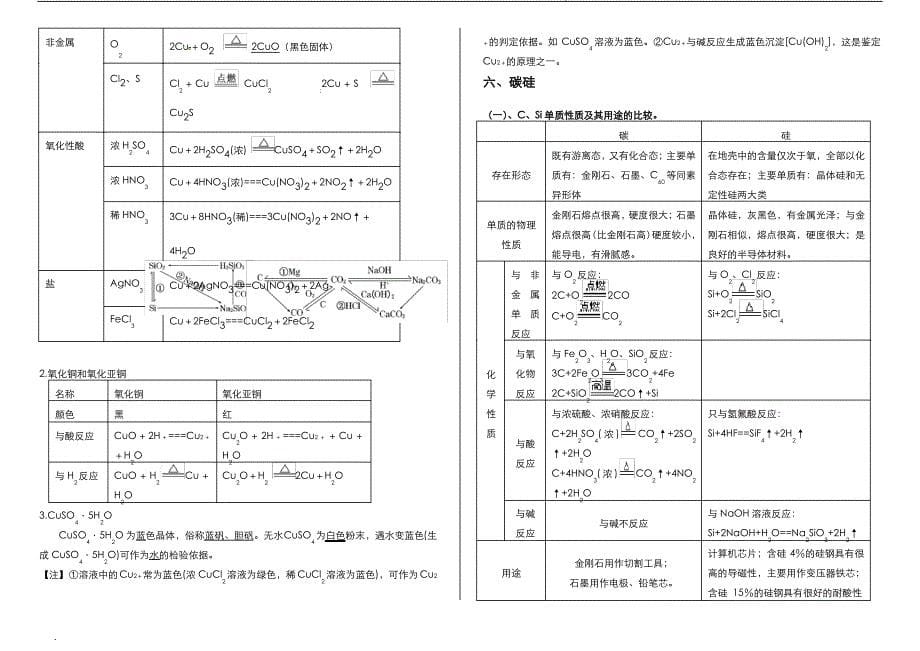 非金属
O2
2Cu + O2 △ 2CuO（黑色固体）
Cl2、S
Cl2 + Cu 点燃 CuCl2 2Cu + S △
Cu2S
氧化性酸
浓 H2SO4
Cu + 2H2SO4(浓) △ CuSO4 + SO2↑ + 2H2O
浓 HNO3
Cu + 4HNO3(浓)===Cu(NO3)2 + 2NO2↑ + 2H2O
稀 HNO3
3Cu + 8HNO3(稀)===3Cu(NO3)2 + 2NO↑ +
4H2O
盐
AgNO3
Cu + 2AgNO3===Cu(NO3)2 + 2Ag
FeCl3
Cu + 2FeCl3===CuCl2 + 2FeCl2
SiO2 H2SiO3 ①Mg NaOH
② CO2 Na2CO3
① CO H+
Ca(OH)2
Si Na2SiO3 C CO ③HCl CaCO3
2.氧化铜和氧化亚铜
名称 氧化铜 氧化亚铜
颜色 黑 红
与酸反应
CuO + 2H+ ===Cu2+
+ H2O
Cu2O + 2H+ ===Cu2+ + Cu +
H2O
与 H2反应
CuO + H2 △ Cu +
H2O
Cu2O + H2 △ 2Cu + H2O
3.CuSO4・5H2O
CuSO4・5H2O 为蓝色晶体，俗称蓝矾、胆矾。无水CuSO4为白色粉末，遇水变蓝色(生
成 CuSO4・5H2O)可作为水的检验依据。
【注】①溶液中的 Cu2+常为蓝色(浓 CuCl2溶液为绿色，稀 CuCl2溶液为蓝色)，可作为 Cu2
+的判定依据。如 CuSO4溶液为蓝色。②Cu2+与碱反应生成蓝色沉淀[Cu(OH)2]，这是鉴定
Cu2+的原理之一。
六、碳硅
（一）、C、Si 单质性质及其用途的比较。
碳 硅
存在形态
既有游离态，又有化合态；主要单
质有：金刚石、石墨、C60等同素
异形体
在地壳中的含量仅次于氧，全部以化
合态存在；主要单质有：晶体硅和无
定性硅两大类
单质的物理
性质
金刚石熔点很高，硬度很大；石墨
熔点很高（比金刚石高）硬度较小，
能导电，有滑腻感。
晶体硅，灰黑色，有金属光泽；与金
刚石相似，熔点很高，硬度很大；是
良好的半导体材料。
化学性质
与非
金属
单质
反应
与 O2反应：
2C+O2 点燃 2CO
C+O2 点燃 CO2
与 O2、Cl2反应：
Si+O2 △ SiO2
Si+2Cl2 △ SiCl4
与氧
化物
反应
与 Fe2O3、H2O、SiO2反应：
3C+2Fe2O3 △ 3CO2+4Fe
2C+SiO2 高温 2CO↑+Si
与酸
反应
与浓硫酸、浓硝酸反应：
C+2H2SO4(浓) △ CO2↑+2SO2
↑+2H2O
C+4HNO3(浓) △ CO2↑+4NO2
↑+2H2O
只与氢氟酸反应：
Si+4HF==SiF4↑+2H2↑
与碱
反应
与碱不反应
与 NaOH 溶液反应：
Si+2NaOH+H2O==Na2SiO3+2H2↑
用途
金刚石用作切割工具；
石墨用作电极、铅笔芯。
计算机芯片；含硅 4%的硅钢具有很
高的导磁性，主要用作变压器铁芯；
含硅 15%的硅钢具有很好的耐酸性